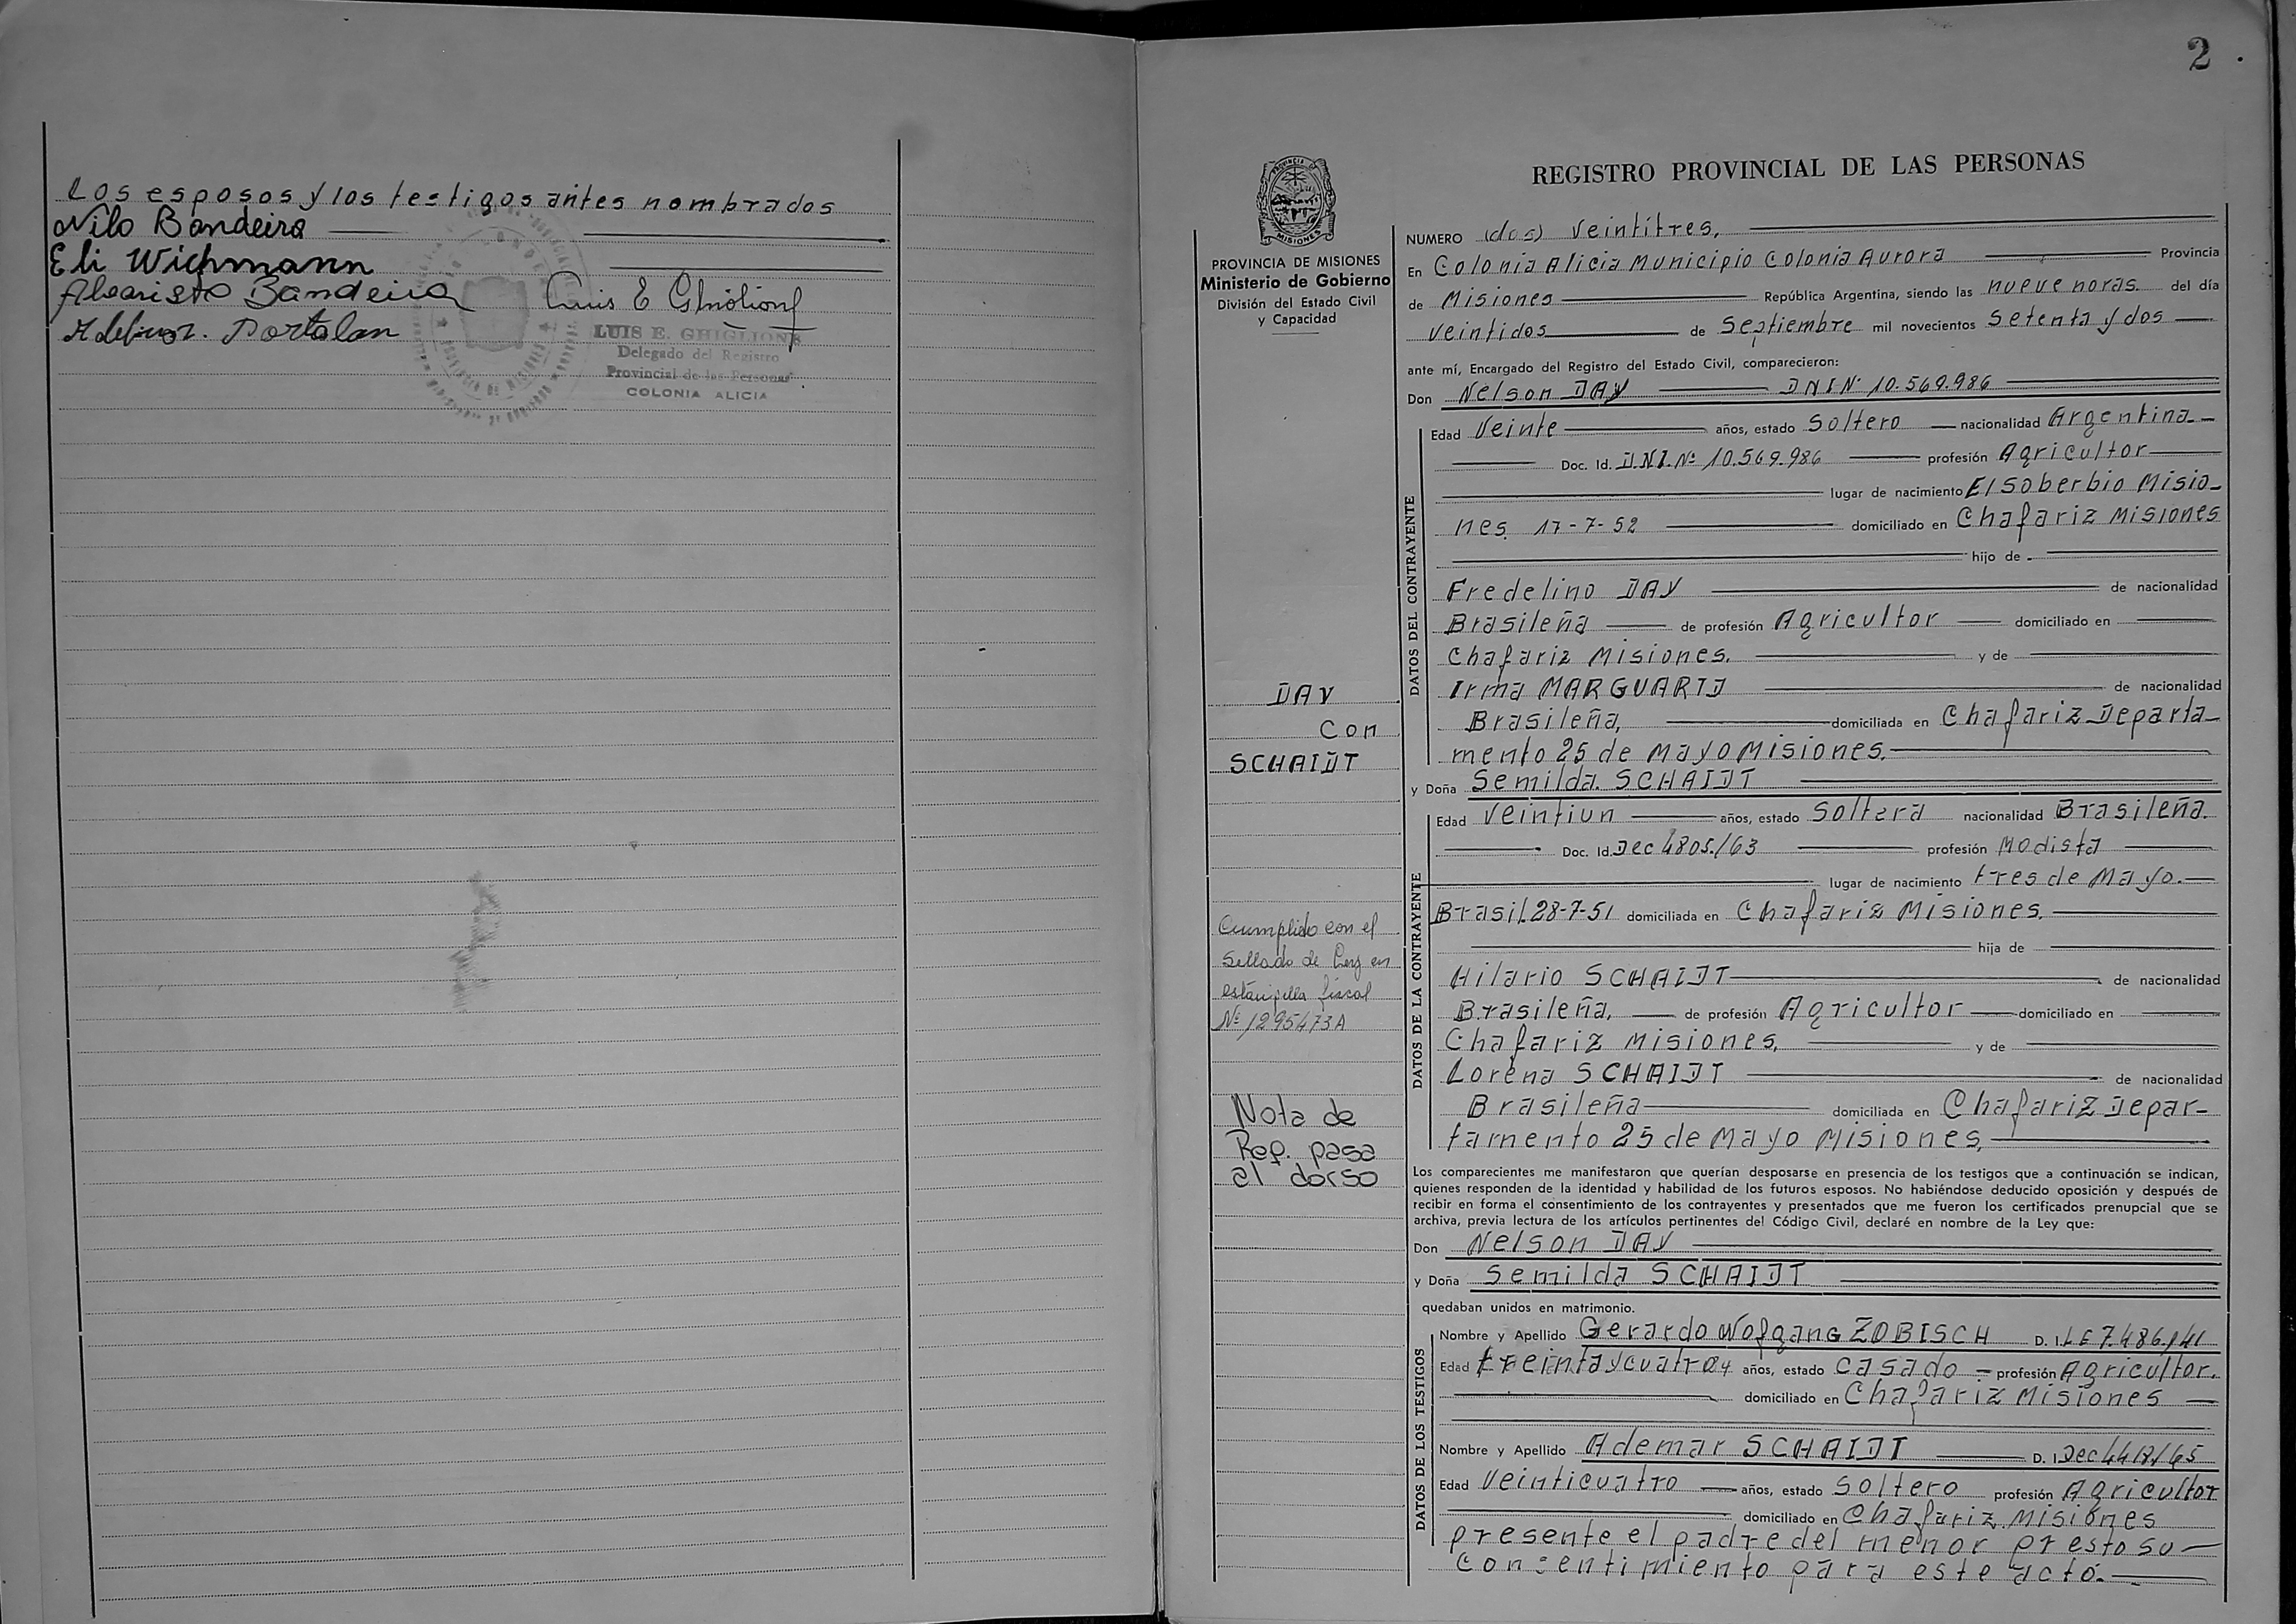 Los esposos y los testigos antes nombrados
Nilo Bandeira
Eli Wichmann
Bandeira
Portalan
LUIS E. GHIGLIONE
Delegado del Registro
Provincial de las Personas
COLONIA ALICIA
2
PROVINCIA DE MISIONES
Ministerio de Gobierno
División del Estado Civil
y Capacidad
DAY
Con
SCHAIDT
Cumplido con el
Sellado de Ley en
estampilla fiscal
Nº 1295473A
Nota de
Ref. pasa
al dorso
REGISTRO PROVINCIAL DE LAS PERSONAS
NUMERO (dos) Veintitres,
En Colonia Alicia Municipio Colonia Aurora Provincia
de Misiones República Argentina, siendo las nueve horas. del día
veintidos de Septiembre mil novecientos Setenta y dos
ante mí, Encargado del Registro del Estado Civil, comparecieron:
Don Nelson DAY DNI Nº 10.569.986
DATOS DEL CONTRAYENTE
Edad Veinte años, estado Soltero nacionalidad Argentina
Doc. Id. D.N.I. Nº 10.569.986 profesión Agricultor
lugar de nacimiento El Soberbio Misio-
nes. 17-7-52 domiciliado en Chafariz Misiones
hijo de
Fredelino DAY de nacionalidad
Brasileña de profesión Agricultor domiciliado en
Chafariz Misiones. y de
Irma MARGUARTD de nacionalidad
Brasileña, domiciliada en Chafariz Departa-
mento 25 de Mayo Misiones.
y Doña Semilda SCHAIDT
DATOS DE LA CONTRAYENTE
Edad Veintiun años, estado Soltera nacionalidad Brasileña.
Doc. Id. Dec 4805/63 profesión Modista
lugar de nacimiento tres de Mayo.
Brasil 28-7-51 domiciliada en Chafariz Misiones.
hija de
Hilario SCHAIDT de nacionalidad
Brasileña, de profesión Agricultor domiciliado en
Chafariz Misiones, y de
Lorena SCHAIDT de nacionalidad
Brasileña domiciliada en Chafariz Depar-
tamento 25 de Mayo Misiones,
Los comparecientes me manifestaron que querían desposarse en presencia de los testigos que a continuación se indican,
quienes responden de la identidad y habilidad de los futuros esposos. No habiéndose deducido oposición y después de
recibir en forma el consentimiento de los contrayentes y presentados que me fueron los certificados prenupcial que se
archiva, previa lectura de los artículos pertinentes del Código Civil, declaré en nombre de la Ley que:
Don Nelson DAY
y Doña Semilda SCHAIDT
quedaban unidos en matrimonio.
DATOS DE LOS TESTIGOS
Nombre y Apellido Gerardo Wofgang ZOBISCH D. I. LE
Edad treinta y cuatro años, estado casado profesión Agricultor.
domiciliado en Chafariz Misiones
Nombre y Apellido Ademar SCHAIDT D. I Dec
Edad Veinticuatro años, estado Soltero profesión Agricultor
domiciliado en Chafariz Misiones
presente el padre del menor presto su
Consentimiento para este acto.